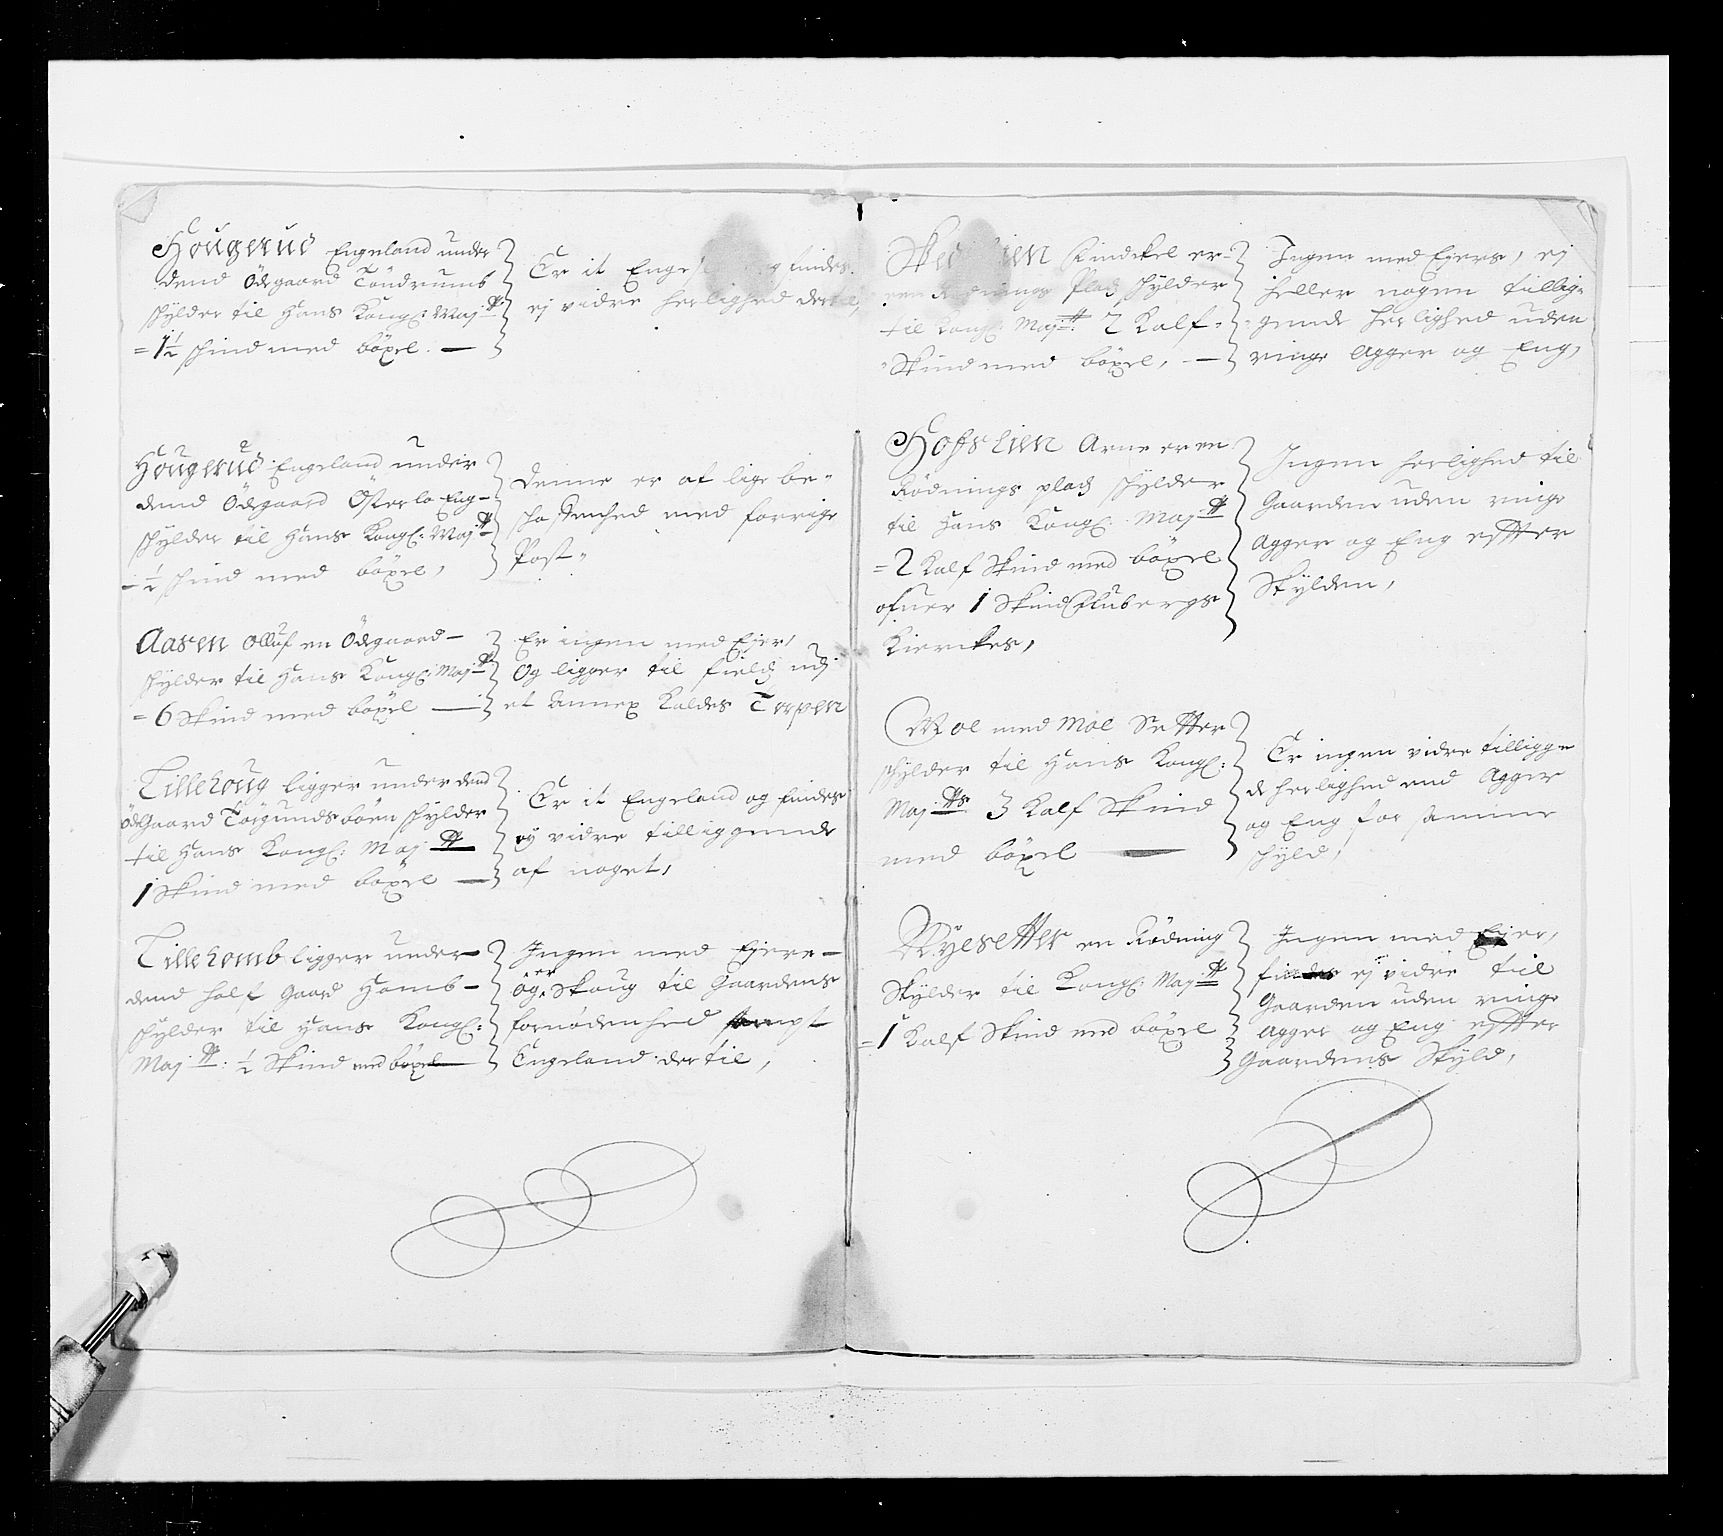 Hougerud Engeland under
dend Ödegaard Tøndrumb
skylder til Hans Kongl: Maj:tt
= 1½ skind med böxel. —
Er it Enge findes.
ej vidre herlighed dertil,
Hougerud Engeland under
dend Ödegaard Österlo Eng-
skylder til Hans Kongl: Maj:tt
- ½ skind med böxel,
Denne er af lige be-
skaffenhed med forrige
Post-
Aasen Olluf en Ödegaard —
skylder til Hans Kongl: Maj:tt
= 6 Skind med böxel —
Er ingen med Ejer,
Og ligger til fields udj
et Annex Kaldes Torpen
Lillehoug ligger under dend
ödeGaard Torgunds böen skylder
til Hans Kongl: Maj:tt
1 Skind med böxel —
Er it Engeland og findes
ey vidre tilliggende
af noget,
Lillehomb ligger under
dend half Gaard Homb —
skylder til Hans Kongl:
Maj:tt: ½ Skind med böxel
Ingen med Ejere —
og er Skoug til Gaardens
fornødenhed sampt
Engeland der til,
Kindchel er
Rödnings Plads skylder
til Kongl: Maj:tt 2 Kalf-
Skind med böxel, —
Ingen med Ejers, ej
heller nogen tillig-
gende herlighed uden
ringe Agger og Eng,
Hofslien Arne er en
Rödnings plads skylder
til Hans Kongl: Maj:tt
= 2 Kalf Skind med böxel
ofuer 1 Skind Flubergs
Kierckes,
Ingen herlighed til
Gaarden uden ringe
Agger og Eng effter
Skylden,
Moe med Moe Setter
skylder til Hans Kongl:
Maj:tts 3 Kalf Skind
med böxel —
Er ingen vidre tilligge
de herlighed end Agger
og Eng for samme
skyld,
Nyesetter en Rödning
Skylder til Kongl: Maj:tt
= 1 Kalf Skind med böxel
Ingen med Ejer,
findes ej vidre til
Gaarden uden ringe
Agger og Eng effter
Gaardens Skyld,